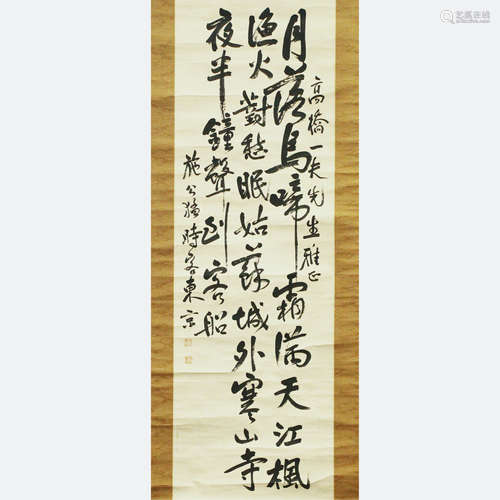 高橋一夫先生雅正
月落烏啼霜满天江楓
渔火對愁眠姑蘇城外寒山寺
夜半鐘聲到客船
施公猛時客東京